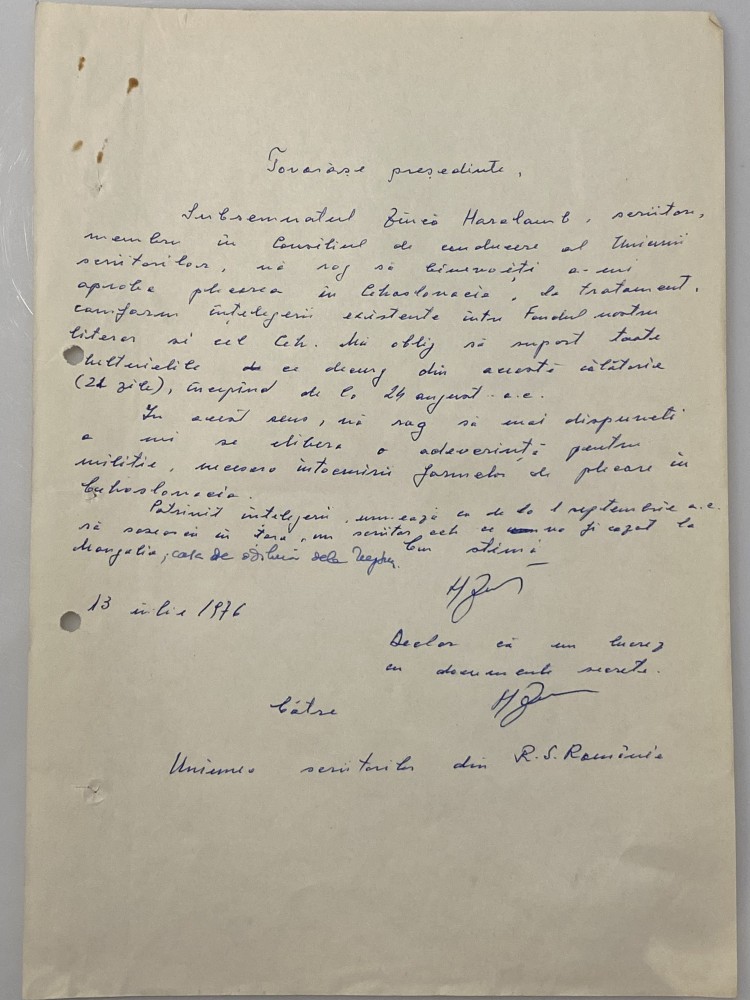 Tovarășe președinte,
Subsemnatul Zincă Haralamb, scriitor,
membru în Consiliul de conducere al Uniunii
scriitorilor, vă rog să binevoiți a-mi
aproba plecarea în Cehoslovacia, la tratament,
conform înțelegerii existente între Fondul nostru
literar și cel Ceh. Mă oblig să suport toate
cheltuielile ce decurg din această călătorie
(21 zile), începînd de la 24 august a.c.
În acest sens, vă rog să mai dispuneți
a mi se elibera o adeverință pentru
miliție, necesară întocmirii formelor de plecare în
Cehoslovacia.
Potrivit înțelegerii, urmează ca de la 1 septembrie a.c.
să sosească în țară, un scriitor ceh ce va fi cazat la
Mangalia, casa de odihnă dela Neptun.
Cu stimă
HZincă
13 iulie 1976
Declar că nu lucrez
cu documente secrete.
HZincă
Către
Uniunea scriitorilor din R.S.România